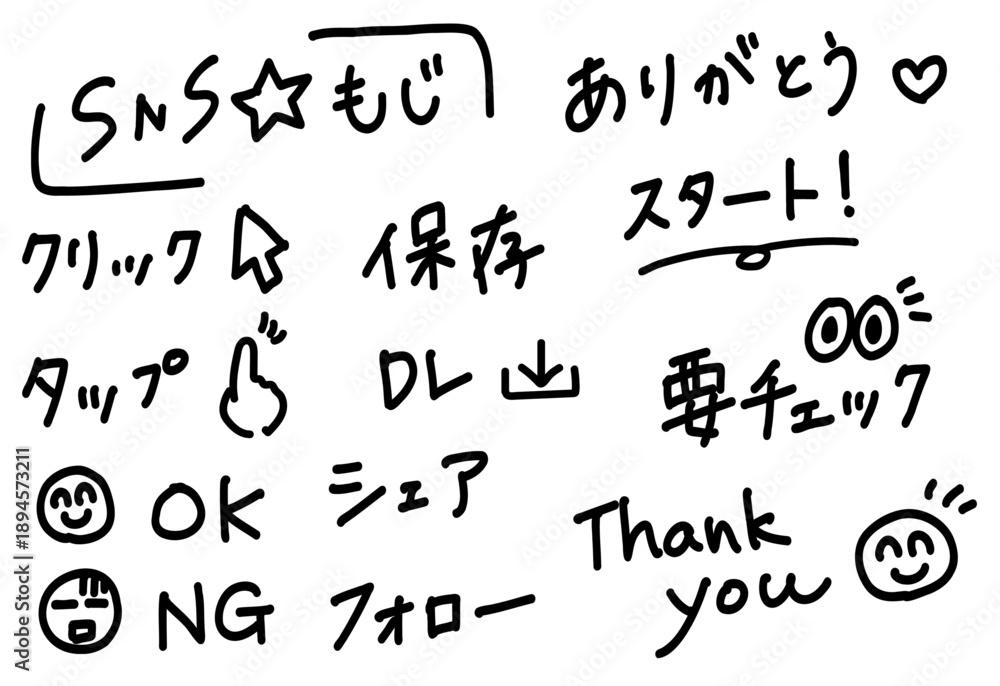 SNS☆もじ
ありがとう♡
スタート!
クリック
保存
タップ
DL
要チェック
OK
シェア
Thank
you
NG
フォロー
Adobe Stock | #1894573211